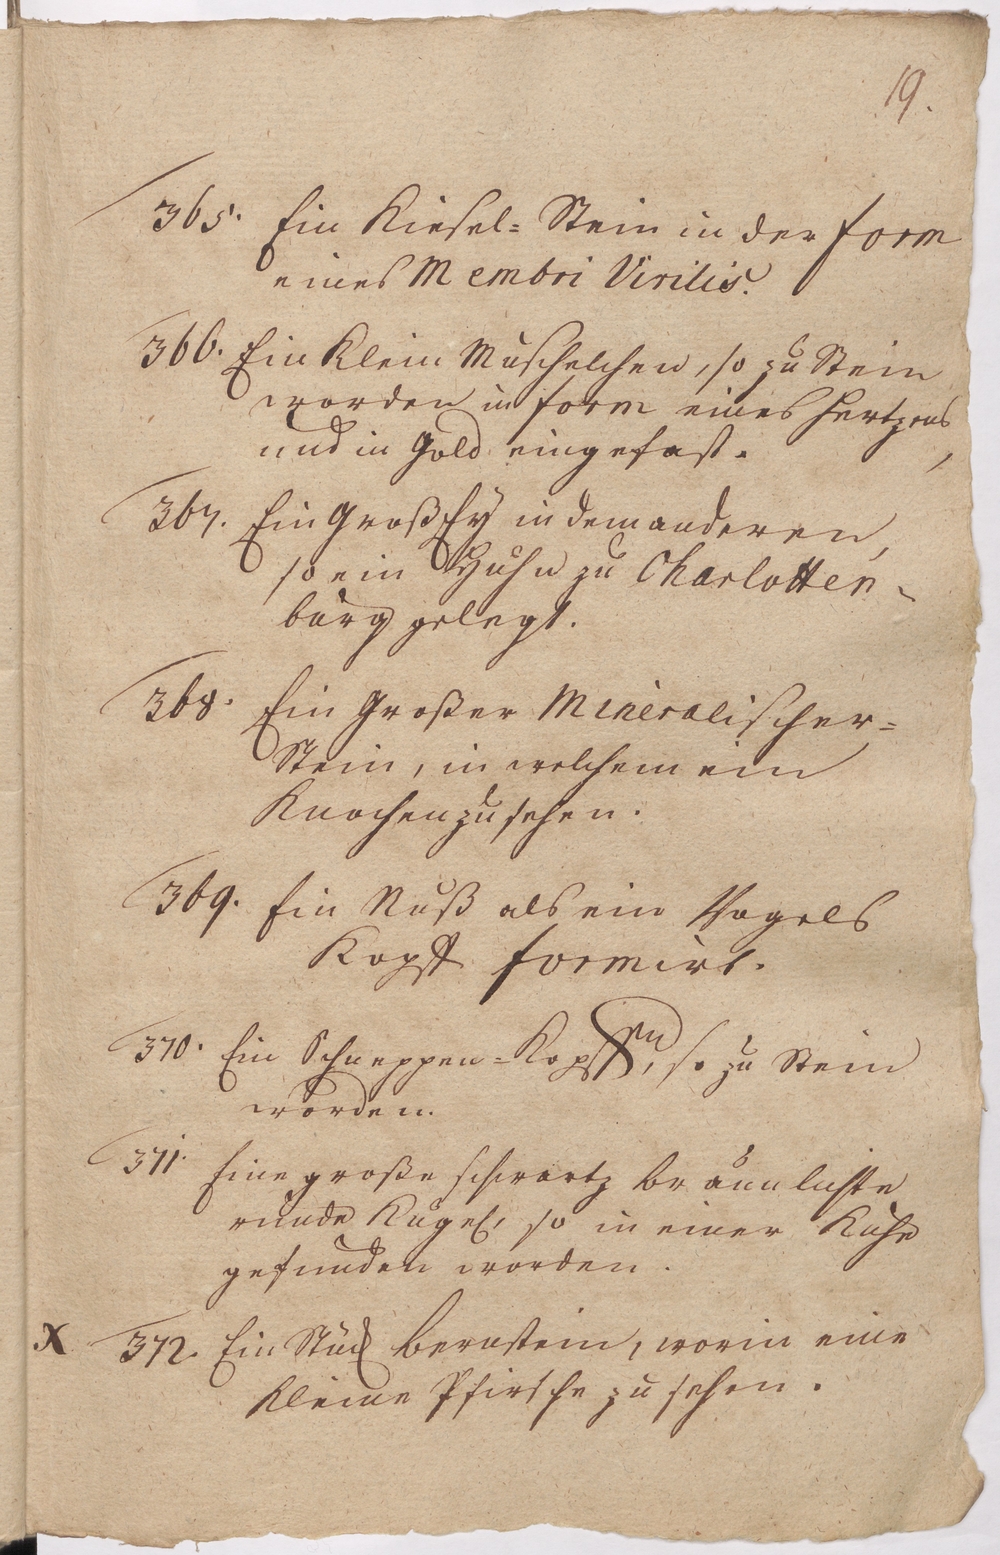 19.
365. Ein Kiesel=Stein in der form
eines Membri Virilis.
366. Ein Klein Muschelchen, so zu Stein
worden in form eines Hertzens,
und in Gold eingefast.
367. Ein Groß Ey in dem anderen,
so ein Huhn zu Charlotten-
burg gelegt.
368. Ein Großer Mineralischer=
Stein, in welchem ein
Knochen zu sehen.
369. Ein Nuß als ein Vogels
Kopff formirt.
370. Ein Schneppen=Kopff, so zu Stein
worden.
371. Eine große schwartz braunlichte
runde Kugel, so in einer Kuhe
gefunden worden.
X 372. Ein Stück bernstein, worin eine
kleine Pfirsche zu sehen.